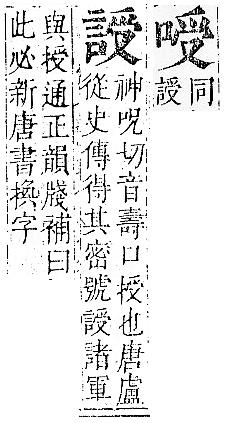 㖟同
䛵
䛵神呪切音壽口授也唐盧
從史傳得其密號䛵諸軍
與授通正韻牋補曰
此必新唐書換字